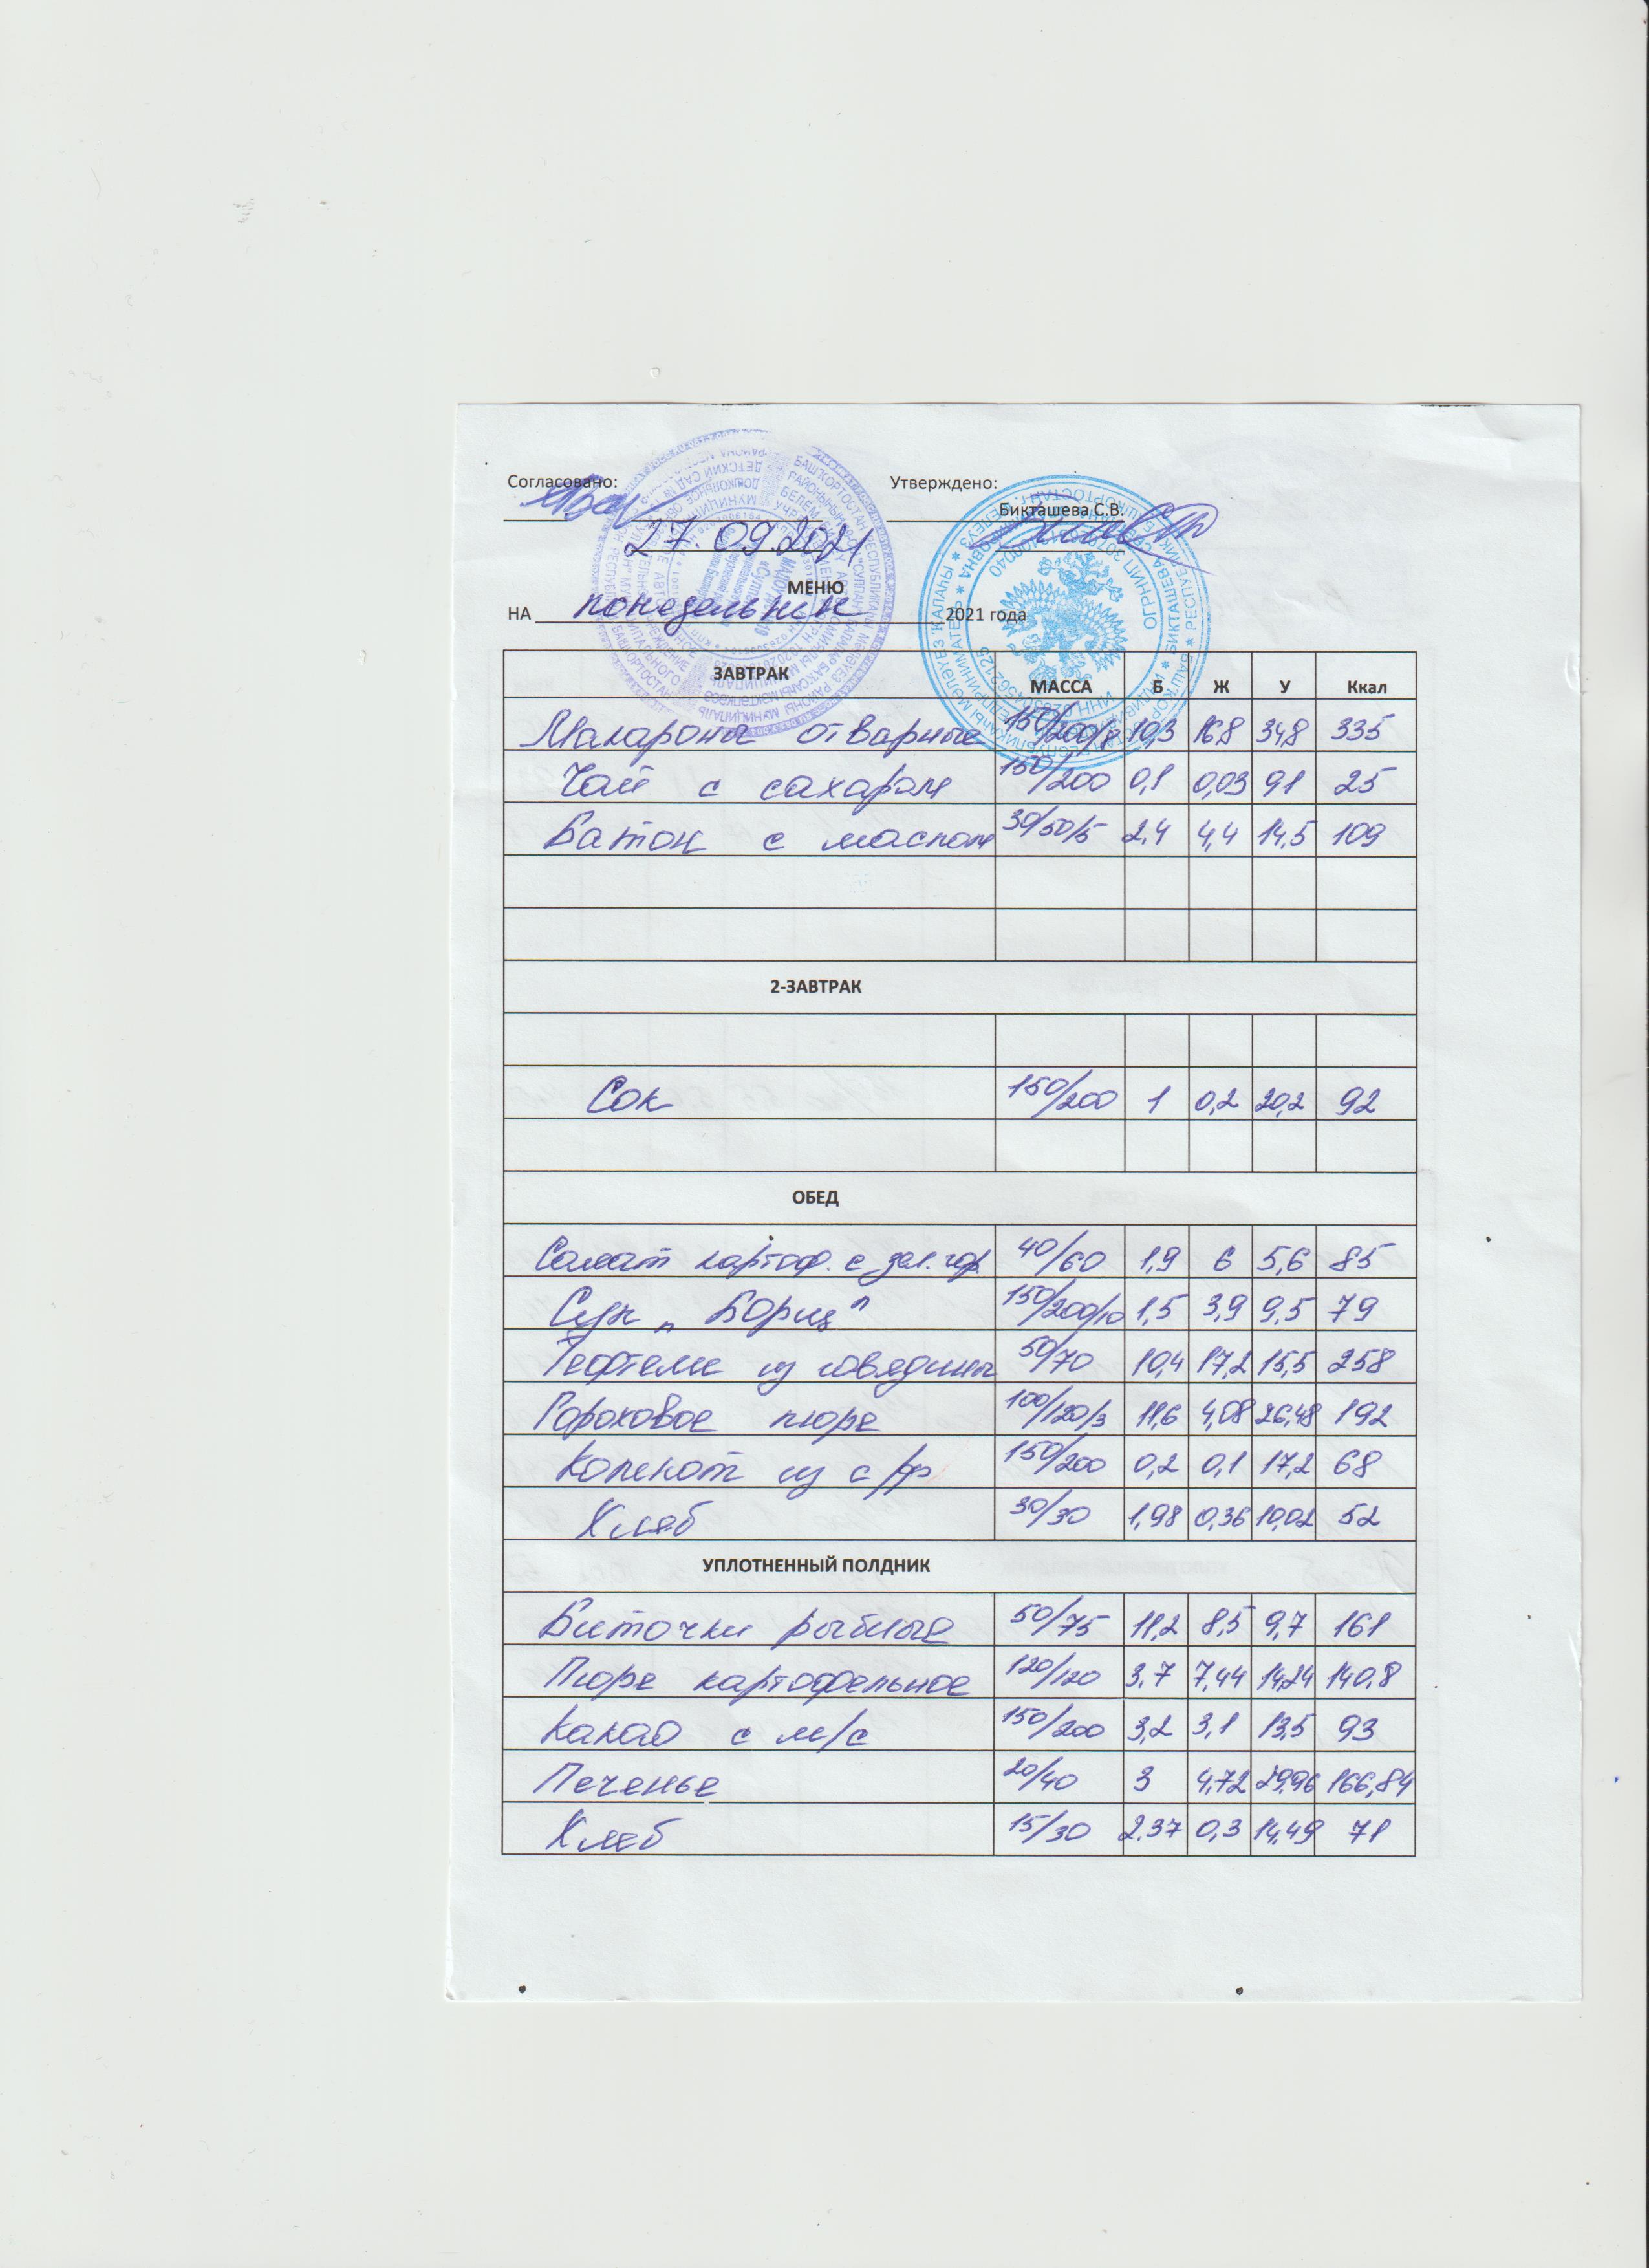 Согласовано: Утверждено:
Бикташева С.В.
27.09.2021
МЕНЮ
НА понедельник 2021 года
ЗАВТРАК МАССА Б Ж У Ккал
Макароны отварные 150/200/8 10,3 16,8 34,8 335
Чай с сахаром 150/200 0,1 0,03 9,1 25
Батон с маслом 30/50/5 2,4 4,4 14,5 109
2-ЗАВТРАК
Сок 150/200 1 0,2 20,2 92
ОБЕД
Салат картоф. с зел. гор. 40/60 1,9 6 5,6 85
Суп „Борщ" 150/200/10 1,5 3,9 9,5 79
Тефтели из говядины 50/70 10,4 17,2 15,5 258
Гороховое пюре 100/120/3 11,6 4,08 26,48 192
Компот из с/ф 150/200 0,2 0,1 17,2 68
Хлеб 30/30 1,98 0,36 10,02 52
УПЛОТНЕННЫЙ ПОЛДНИК
Биточки рыбные 50/75 11,2 8,5 9,7 161
Пюре картофельное 120/120 3,7 7,44 14,24 140,8
Какао с м/с 150/200 3,2 3,1 13,5 93
Печенье 20/40 3 4,72 29,96 166,84
Хлеб 15/30 2,37 0,3 14,49 71